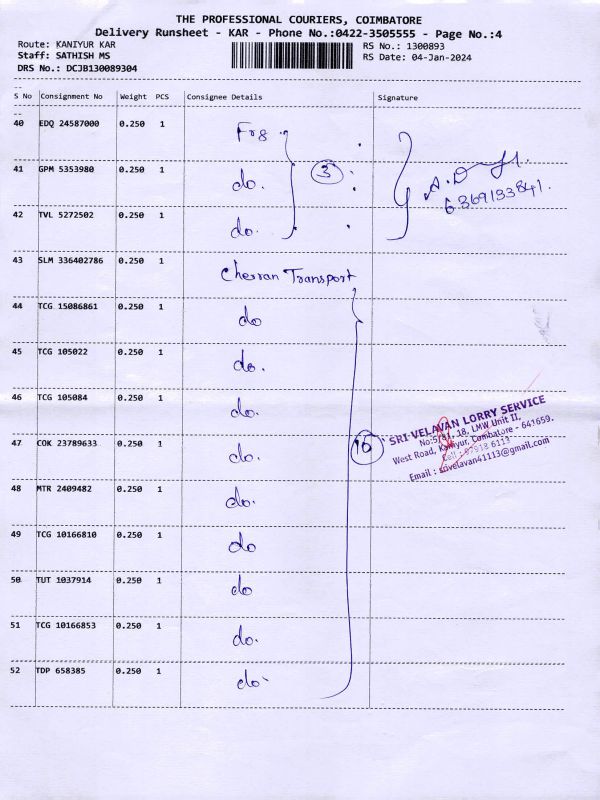 THE PROFESSIONAL COURIERS, COIMBATORE
Delivery Runsheet - KAR - Phone No.:0422-3505555 - Page No.:4
Route: KANIYUR KAR
Staff: SATHISH MS
DRS No.: DCJB130089304
RS No.: 1300893
RS Date: 04-Jan-2024
S No Consignment No Weight PCS Consignee Details Signature
40 EDQ 24587000 0.250 1
41 GPM 5353980 0.250 1 do.
3
42 TVL 5272502 0.250 1 do.
6369133841.
43 SLM 336402786 0.250 1 Cherran Transport
44 TCG 15086861 0.250 1 do
45 TCG 105022 0.250 1 do.
46 TCG 105084 0.250 1 do.
47 COK 23789633 0.250 1 do.
10
SRI VELAVAN LORRY SERVICE
18, LMW Unit II.
West Road, Kaniyur, Coimbatore - 641659.
Cell : 97918 6113
Email : srivelavan41113@gmail.com
48 MTR 2409482 0.250 1 do.
49 TCG 10166810 0.250 1 do
50 TUT 1037914 0.250 1 do
51 TCG 10166853 0.250 1 do.
52 TDP 658385 0.250 1 do.